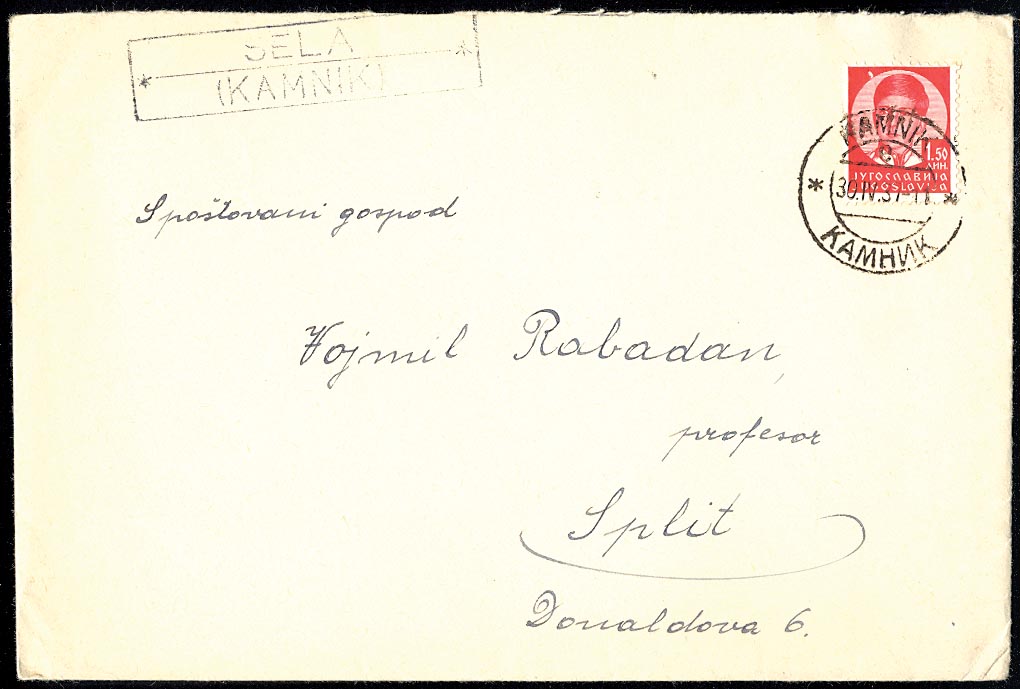 SELA
(KAMNIK)
KAMNIK
c
30.IV.37-11
КАМНИК
1.50
ДИН.
ЈУГОСЛАВИЈА
JUGOSLAVIJA
Spoštovani gospod
Vojmil Rabadan,
profesor
Split
Donaldova 6.